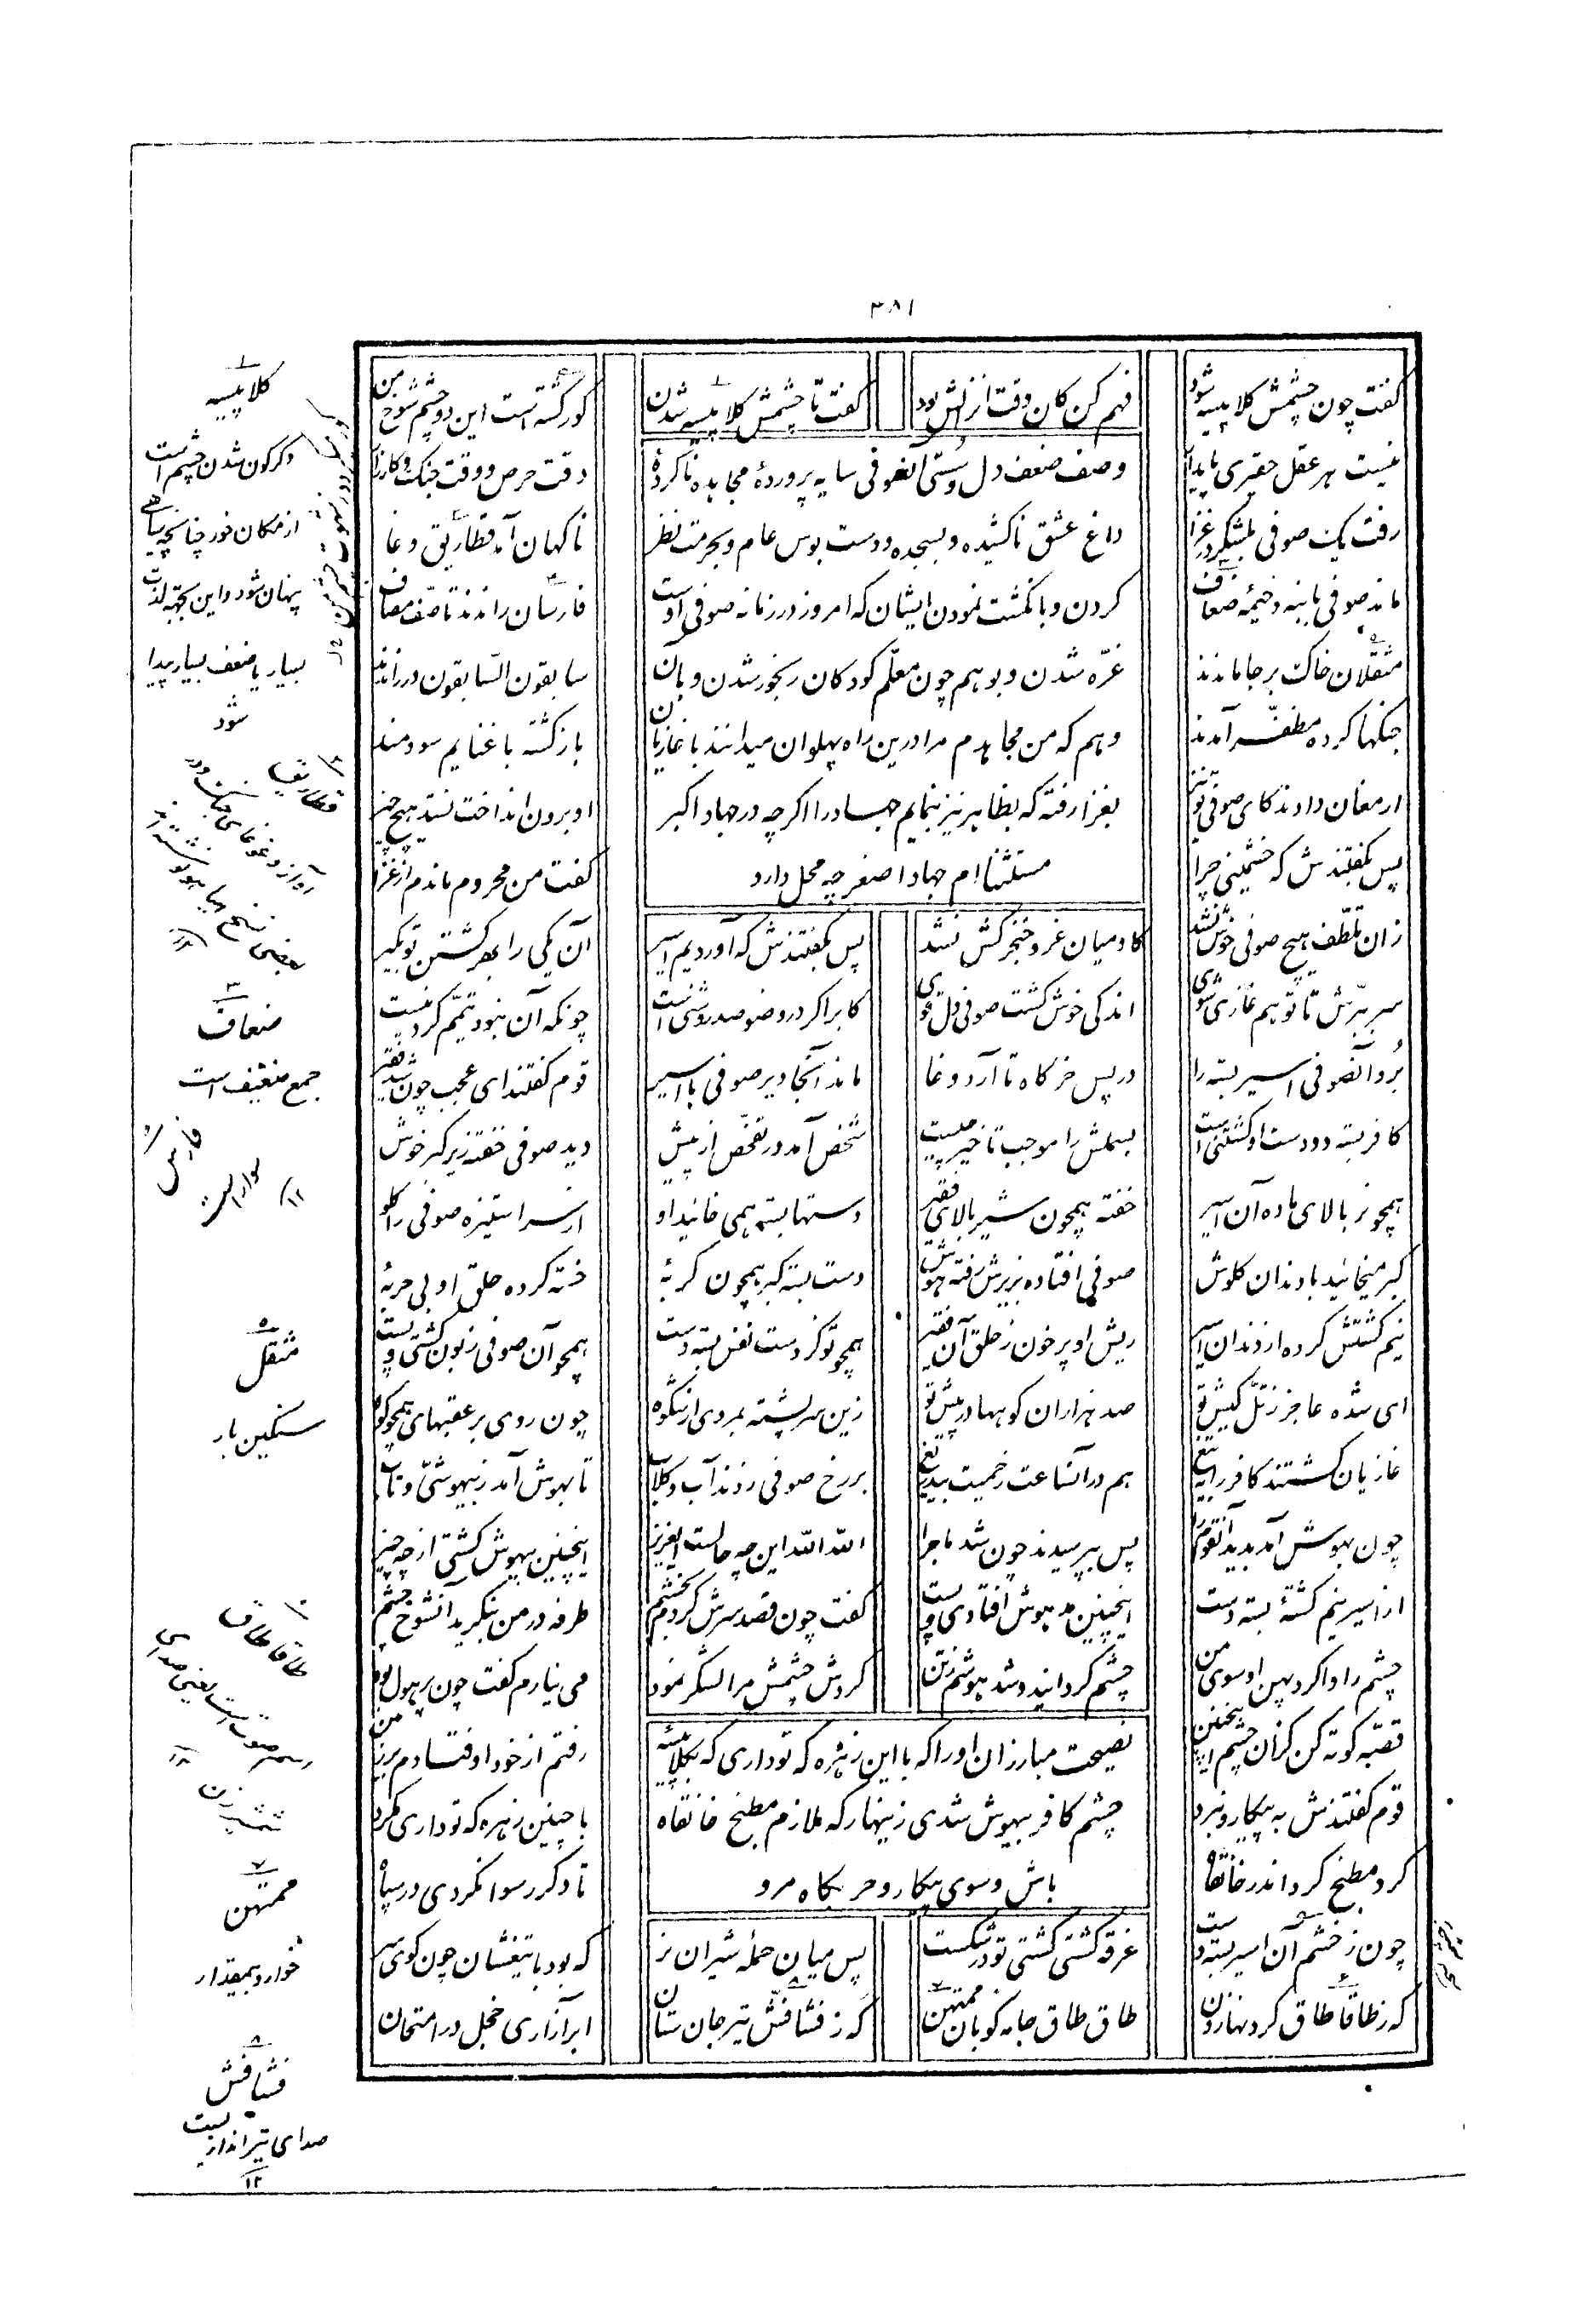 ۳۸۱
گفت چون چشمش کلاپیسه شود
فهم کن کان وقت انزالش بود
گفت تا چشمش کلاپیسه شدن
کور گشته است این دو چشم شوخ من
نیست هر عقل حقیری پایدار
وقت حرص و وقت جنک و کارزار
وصف ضعف دل و سستی آنصوفی سایه پروردهٔ مجاهده ناکردهٔ
داغ عشق ناکشیده و بسجده و دست بوس عام و بحرمت نظر
کردن و بانگشت نمودن ایشان که امروز در زمانه صوفی اوست
غرّه شدن و بوهم چون معلّم کودکان رنجور شدن و بان
وهم که من مجاهدم مرا درین راه پهلوان میدانند با غازیان
بغزا رفته که بظاهر نیز بنمایم جهاد را اگر چه در جهاد اکبر
مستثناام جهاد اصغر چه محل دارد
رفت یک صوفی بلشکر در غزا
ناگهان آمد قطاریق و غا
ماند صوفی با بنه و خیمه ضعاف
فارسان راندند تا صفّ مصاف
مثقلان خاک بر جا ماندند
سابقون السّابقون در راندند
جنگها کرده مظفّر آمدند
باز گشته با غنایم سودمند
ارمغان دادند کای صوفی تو نیز
او برون انداخت نستد هیچ چیز
پس بگفتندش که خشمینی چرا
گفت من محروم ماندم از غزا
زان تلطّف هیچ صوفی خوش نشد
کاو میان غزو خنجر کش نشد
پس بگفتندش که آوردیم اسیر
آن یکی را بهر کشتن تو بگیر
سر ببرّش تا تو هم غازی شوی
اندکی خوش گشت صوفی دل قوی
کابرا گر در وضو صد روشنی است
چونکه آن نبود تیمّم کردنیست
برد آنصوفی اسیر بسته را
در پس خرگاه تا آرد وغا
ماند آنجا دیر صوفی با اسیر
قوم گفتند ای عجب چون شد فقیر
کافر بسته دو دست او کشتنی است
بسملش را موجب تاخیر چیست
شخصی آمد در تفحّص از پیش
دید صوفی خفته زیر گبر خوش
همچو نر بالای ماده آن اسیر
خفته همچون شیر بالای فقیر
دستها بسته همی خائید او
از سر استیزه صوفی را گلو
گبر میخائید با دندان گلوش
صوفی افتاده بزیرش رفته هوش
دست بسته گبر همچون گربهٔ
خسته کرده حلق او بی حربهٔ
نیم کشتش کرده از دندان اسیر
ریش او پر خون ز حلق آن فقیر
همچو تو کز دست نفس بسته دست
همچو آن صوفی زبون گشتی و پست
ای شده عاجز ز تلّ کیش تو
صد هزاران کوهها در پیش تو
زین سر پشته بمردی از شکوه
چون روی بر عقبهای همچو کوه
غازیان کشتند کافر را بتیغ
هم در آنساعت ز حمیت بیدریغ
بر رخ صوفی زدند آب و گلاب
تا بهوش آمد ز بیهوشیّ و تاب
چون بهوش آمد بدید آنقوم را
پس بپرسیدند چون شد ماجرا
الله الله این چه حالست ایعزیز
اینچنین بیهوش گشتی از چه چیز
از اسیر نیم کشتهٔ بسته دست
اینچنین مدهوش افتادی و پست
گفت چون قصد سرش کردم بخشم
طرفه در من بنگرید آنشوخ چشم
چشم را وا کرد پهن او سوی من
چشم گردانید و شد هوشم ز تن
گردش چشمش مرا لشگر نمود
می نیارم گفت چون پر هول بود
قصّه کوته کن کزان چشم اینچنین
رفتم از خود اوفتادم بر زمین
نصیحت مبارزان او را که با این زهره که تو داری که بکلاپیسهٔ
چشم کافر بیهوش شدی زینهار که ملازم مطبخ خانقاه
باش و سوی پیکار و حربگاه مرو
قوم گفتندش به پیکار و نبرد
با چنین زهره که تو داری مگرد
گرد مطبخ گرد اندر خانقاه
تا دگر رسوا نگردی در سپاه
چون ز خشم آن اسیر بسته دست
غرقه گشتی کشتی تو در شکست
پس میان حملهٔ شیران نر
که بود با تیغشان چون گوی سر
که ز طاقاطاق گردنها زدن
طاق طاق جامه کوبان ممتهن
که ز فشافشّ تیر جان ستان
ابر آزاری خجل در امتحان
۱
کلاپیسه
دگرگون شدن چشم است
از مکان خود چنانچه سیاهی
پنهان شود و این بجهة لذّت
بسیار یا ضعف بسیار پیدا
شود
۲
قطاریق
۳
ضعاف
جمع ضعیف است
فارس
سوار است
۱۲
۵
مثقل
سنگین بار
۶
طاقاطاق
شمشیر زدن
۷
ممتهن
خوار و بیمقدار
۸
فشافش
صدای تیر اندازیست
۱۲